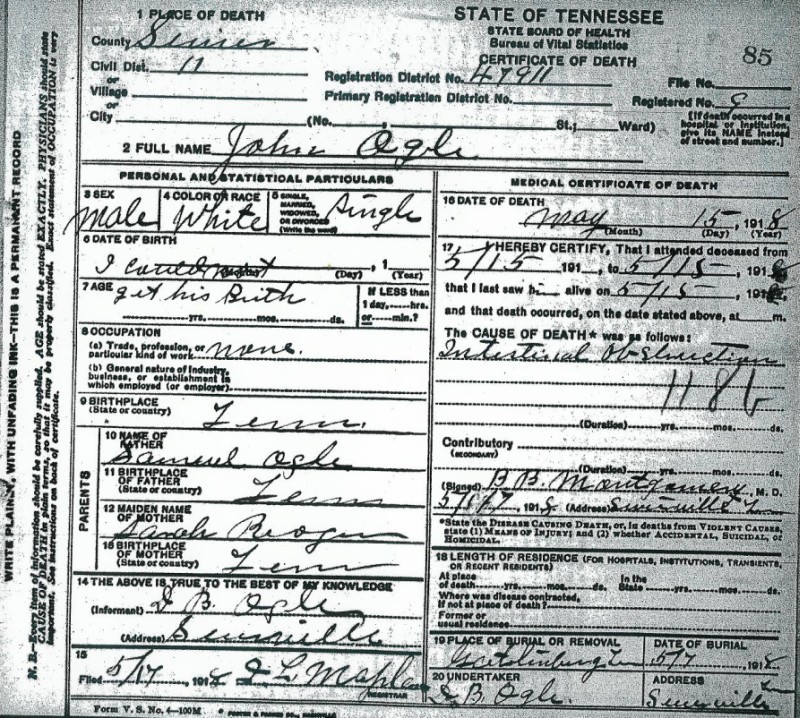 STATE OF TENNESSEE
STATE BOARD OF HEALTH
Bureau of Vital Statistics
CERTIFICATE OF DEATH
85
1 PLACE OF DEATH
County Sevier
Civil Dist. 11
or
Village
or
City (No. , St.; Ward)
Registration District No. 47911
File No.
Primary Registration District No.
Registered No. 9
[If death occurred in a hospital or institution, give its NAME instead of street and number.]
2 FULL NAME John Ogle
PERSONAL AND STATISTICAL PARTICULARS
3 SEX
Male
4 COLOR OR RACE
White
5 SINGLE, MARRIED, WIDOWED, OR DIVORCED (Write the word)
Single
6 DATE OF BIRTH
I could not
(Month) (Day) , 1 (Year)
7 AGE
get his Birth
yrs. mos. ds.
If LESS than 1 day, hrs. or min.?
8 OCCUPATION
(a) Trade, profession, or particular kind of work none.
(b) General nature of industry, business, or establishment in which employed (or employer)
9 BIRTHPLACE
(State or country) Tenn.
PARENTS
10 NAME OF FATHER
Samuel Ogle
11 BIRTHPLACE OF FATHER
(State or country) Tenn
12 MAIDEN NAME OF MOTHER
Sarah Reagan
13 BIRTHPLACE OF MOTHER
(State or country) Tenn
14 THE ABOVE IS TRUE TO THE BEST OF MY KNOWLEDGE
(Informant) B. Ogle
(Address) Sevierville
15
Filed 5/17 1918 L Maples
REGISTRAR
MEDICAL CERTIFICATE OF DEATH
16 DATE OF DEATH
May 15, 1918
(Month) (Day) (Year)
17 I HEREBY CERTIFY, That I attended deceased from
5/15 191 , to 5/15 1918
that I last saw h alive on 5/15 1918
and that death occurred, on the date stated above, at m.
The CAUSE OF DEATH * was as follows:
Intestinal Obstruction
118b
(Duration) yrs. mos. ds.
Contributory
(SECONDARY)
(Duration) yrs. mos. ds.
(Signed) B B. Montgomery M. D.
5/17 1918 (Address) Sevierville
*State the DISEASE CAUSING DEATH, or, in deaths from VIOLENT CAUSES, state (1) MEANS OF INJURY; and (2) whether ACCIDENTAL, SUICIDAL, or HOMICIDAL.
18 LENGTH OF RESIDENCE (FOR HOSPITALS, INSTITUTIONS, TRANSIENTS, OR RECENT RESIDENTS)
At place of death yrs. mos. ds.
In the State yrs. mos. ds.
Where was disease contracted, if not at place of death?
Former or usual residence
19 PLACE OF BURIAL OR REMOVAL
Gatlinburg
DATE OF BURIAL
5/7 1918
20 UNDERTAKER
B. Ogle
ADDRESS
Sevierville Tenn
Form V. S. No. 4—100M
WRITE PLAINLY, WITH UNFADING INK—THIS IS A PERMANENT RECORD
N. B.—Every item of information should be carefully supplied. AGE should be stated EXACTLY. PHYSICIANS should state
CAUSE OF DEATH in plain terms, so that it may be properly classified. Exact statement of OCCUPATION is very
important. See instructions on back of certificate.